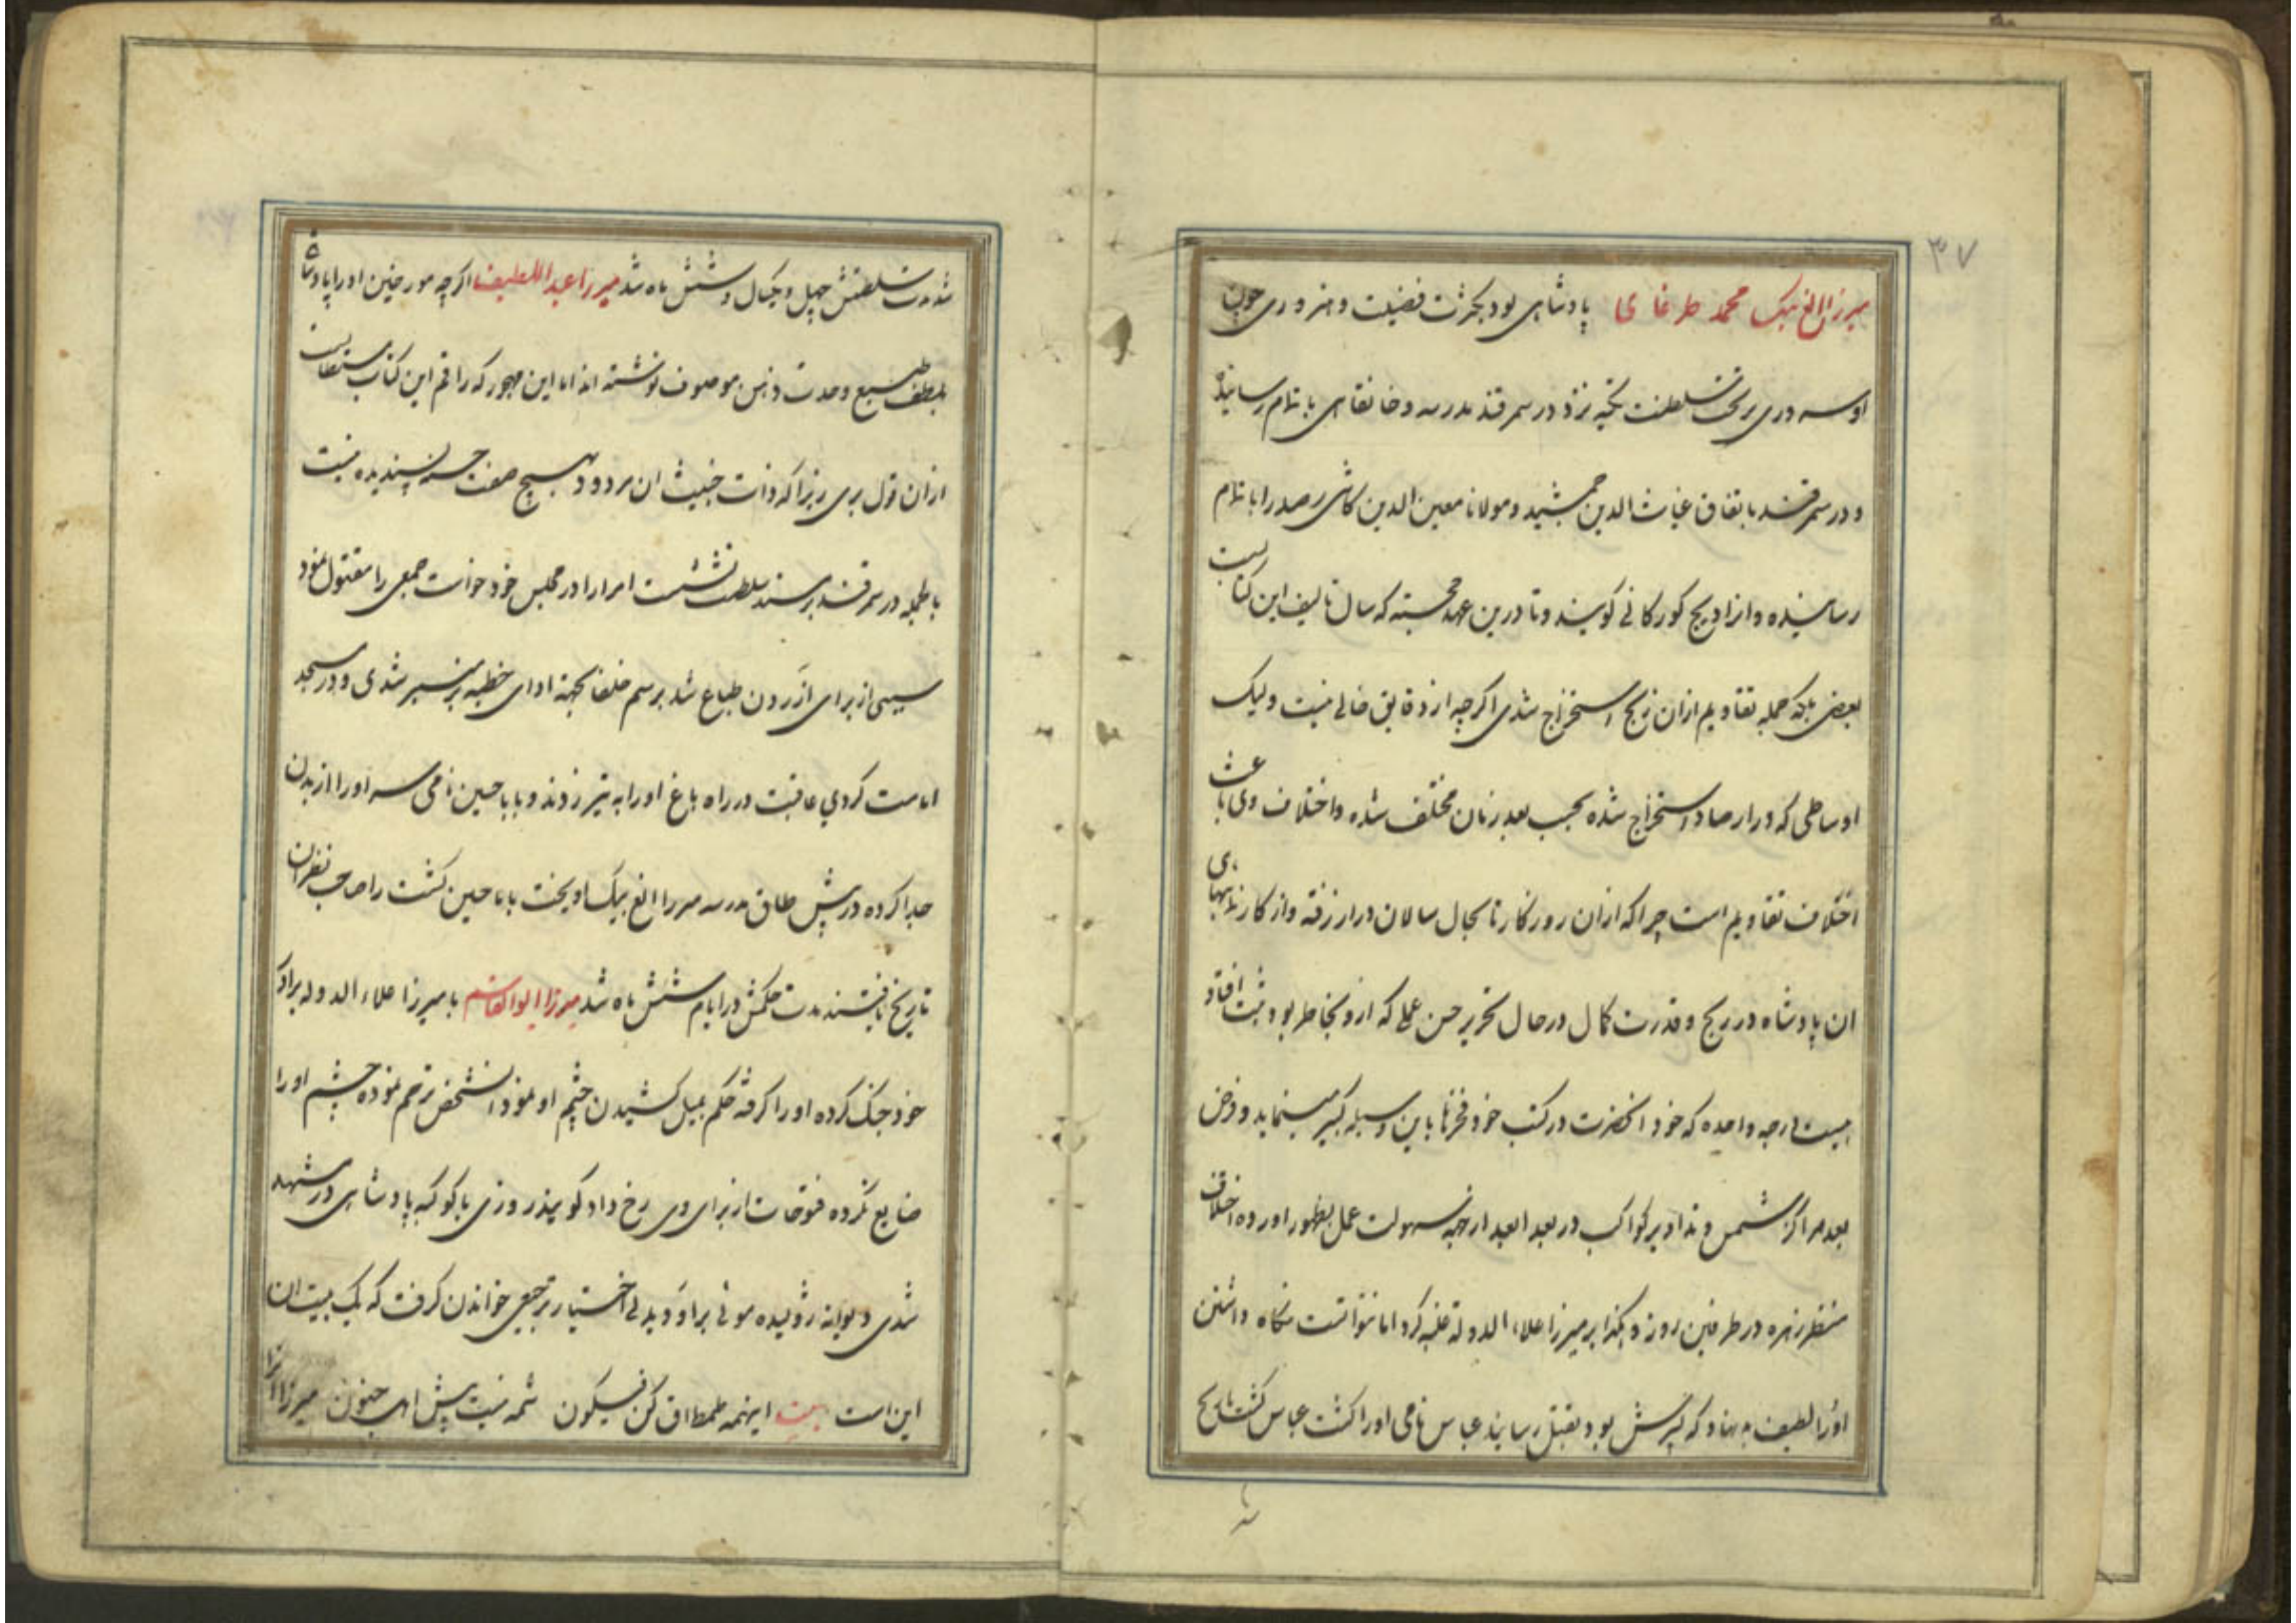 ۳۷
میرزا الغ بیک محمد طرغای پادشاهی بود بکثرت فضیلت و هنروری چون
او سه دری بر تخت سلطنت تکیه نزد در سمرقند مدرسه و خانقاهی باتمام رسانیده
و در سمرقند باتفاق غیاث الدین جمشید و مولانا معین الدین کاشی رصد را باتمام
رسانیده و انرا زیج کورکانی کویند و تا درین عهد خجسته که سال تالیف این کتابست
بعضی بلکه جمله تقاویم ازان زیج استخراج شدی اکرچه از دقایق خالی نیست ولیک
اوساطی که در ارصاد استخراج شده بحسب بعد زمان مختلف شده و اختلاف وی باعث
اختلاف تقاویم است چرا که ازان روزکار تا بحال سالان دراز رفته و از کارنامهای
ان پادشاه در زیج و قدرت کمال در حال تحریر حسن عملی که ازو بخاطر بود ثبت افتاد
واحده که خود انحضرت در کتب خود فخرنا باین وسیله کبیر مینماید و فرض
بعد مراکز شمس و تداویر کواکب در بعد ابعد ارجه سهولت عمل بظهور اورده اختلاف
منظر زهره در طرفین روز و بر میرزا علاء الدوله غلبه کرد اما نتوانست نکاه داشتن
که پسرش بود بقتل رسانید عباس نامی اورا کشت عباس کشت تاریخ
شد مدت سلطنتش چهل و یکسال و شش ماه شد میرزا عبد اللطیف اکرچه مورخین اورا پادشاه
بلطف طبع و حدت ذهن موصوف نوشته اند اما این مهجور که راقم این کتاب مستطابست
ازان قول بری زیرا که ذات خبیث ان مردود بهیچ صفت حسنه پسندیده نیست
بالجمله در سمرقند بر مسند سلطنت نشست امرارا در مجلس خود خواست جمعی را مقتول نمود
از برای ازردن طباع شد برسم خلفا بجهة ادای خطبه بر منبر شدی و در مسجد
امامت کردی عاقبت در راه باغ اورا به تیر زدند و بابا حسین نامی سر اورا از بدن
جدا کرده در پیش طاق مدرسه میرزا الغ بیک اویخت بابا حسین کشت را صاحب نظران
تاریخ یافتند مدت حکمش در ایام شش ماه شد میرزا ابوالقاسم با میرزا علاء الدوله برادر
خود جنک کرده اورا کرفته حکم بمیل کشیدن چشم او نمود انشخص ترحم نموده چشم اورا
ضایع نکرده فتوحات از برای وی رخ داد کویند روزی با کوکبه پادشاهی در مشهد
شدی دیوانه ژولیده موئی براو دید بی اختیار ترجیعی خواندن کرفت که یک بیت ان
این است بیت اینهمه طمطراق کن فیکون شمه نیست پیش اهل جنون میرزا